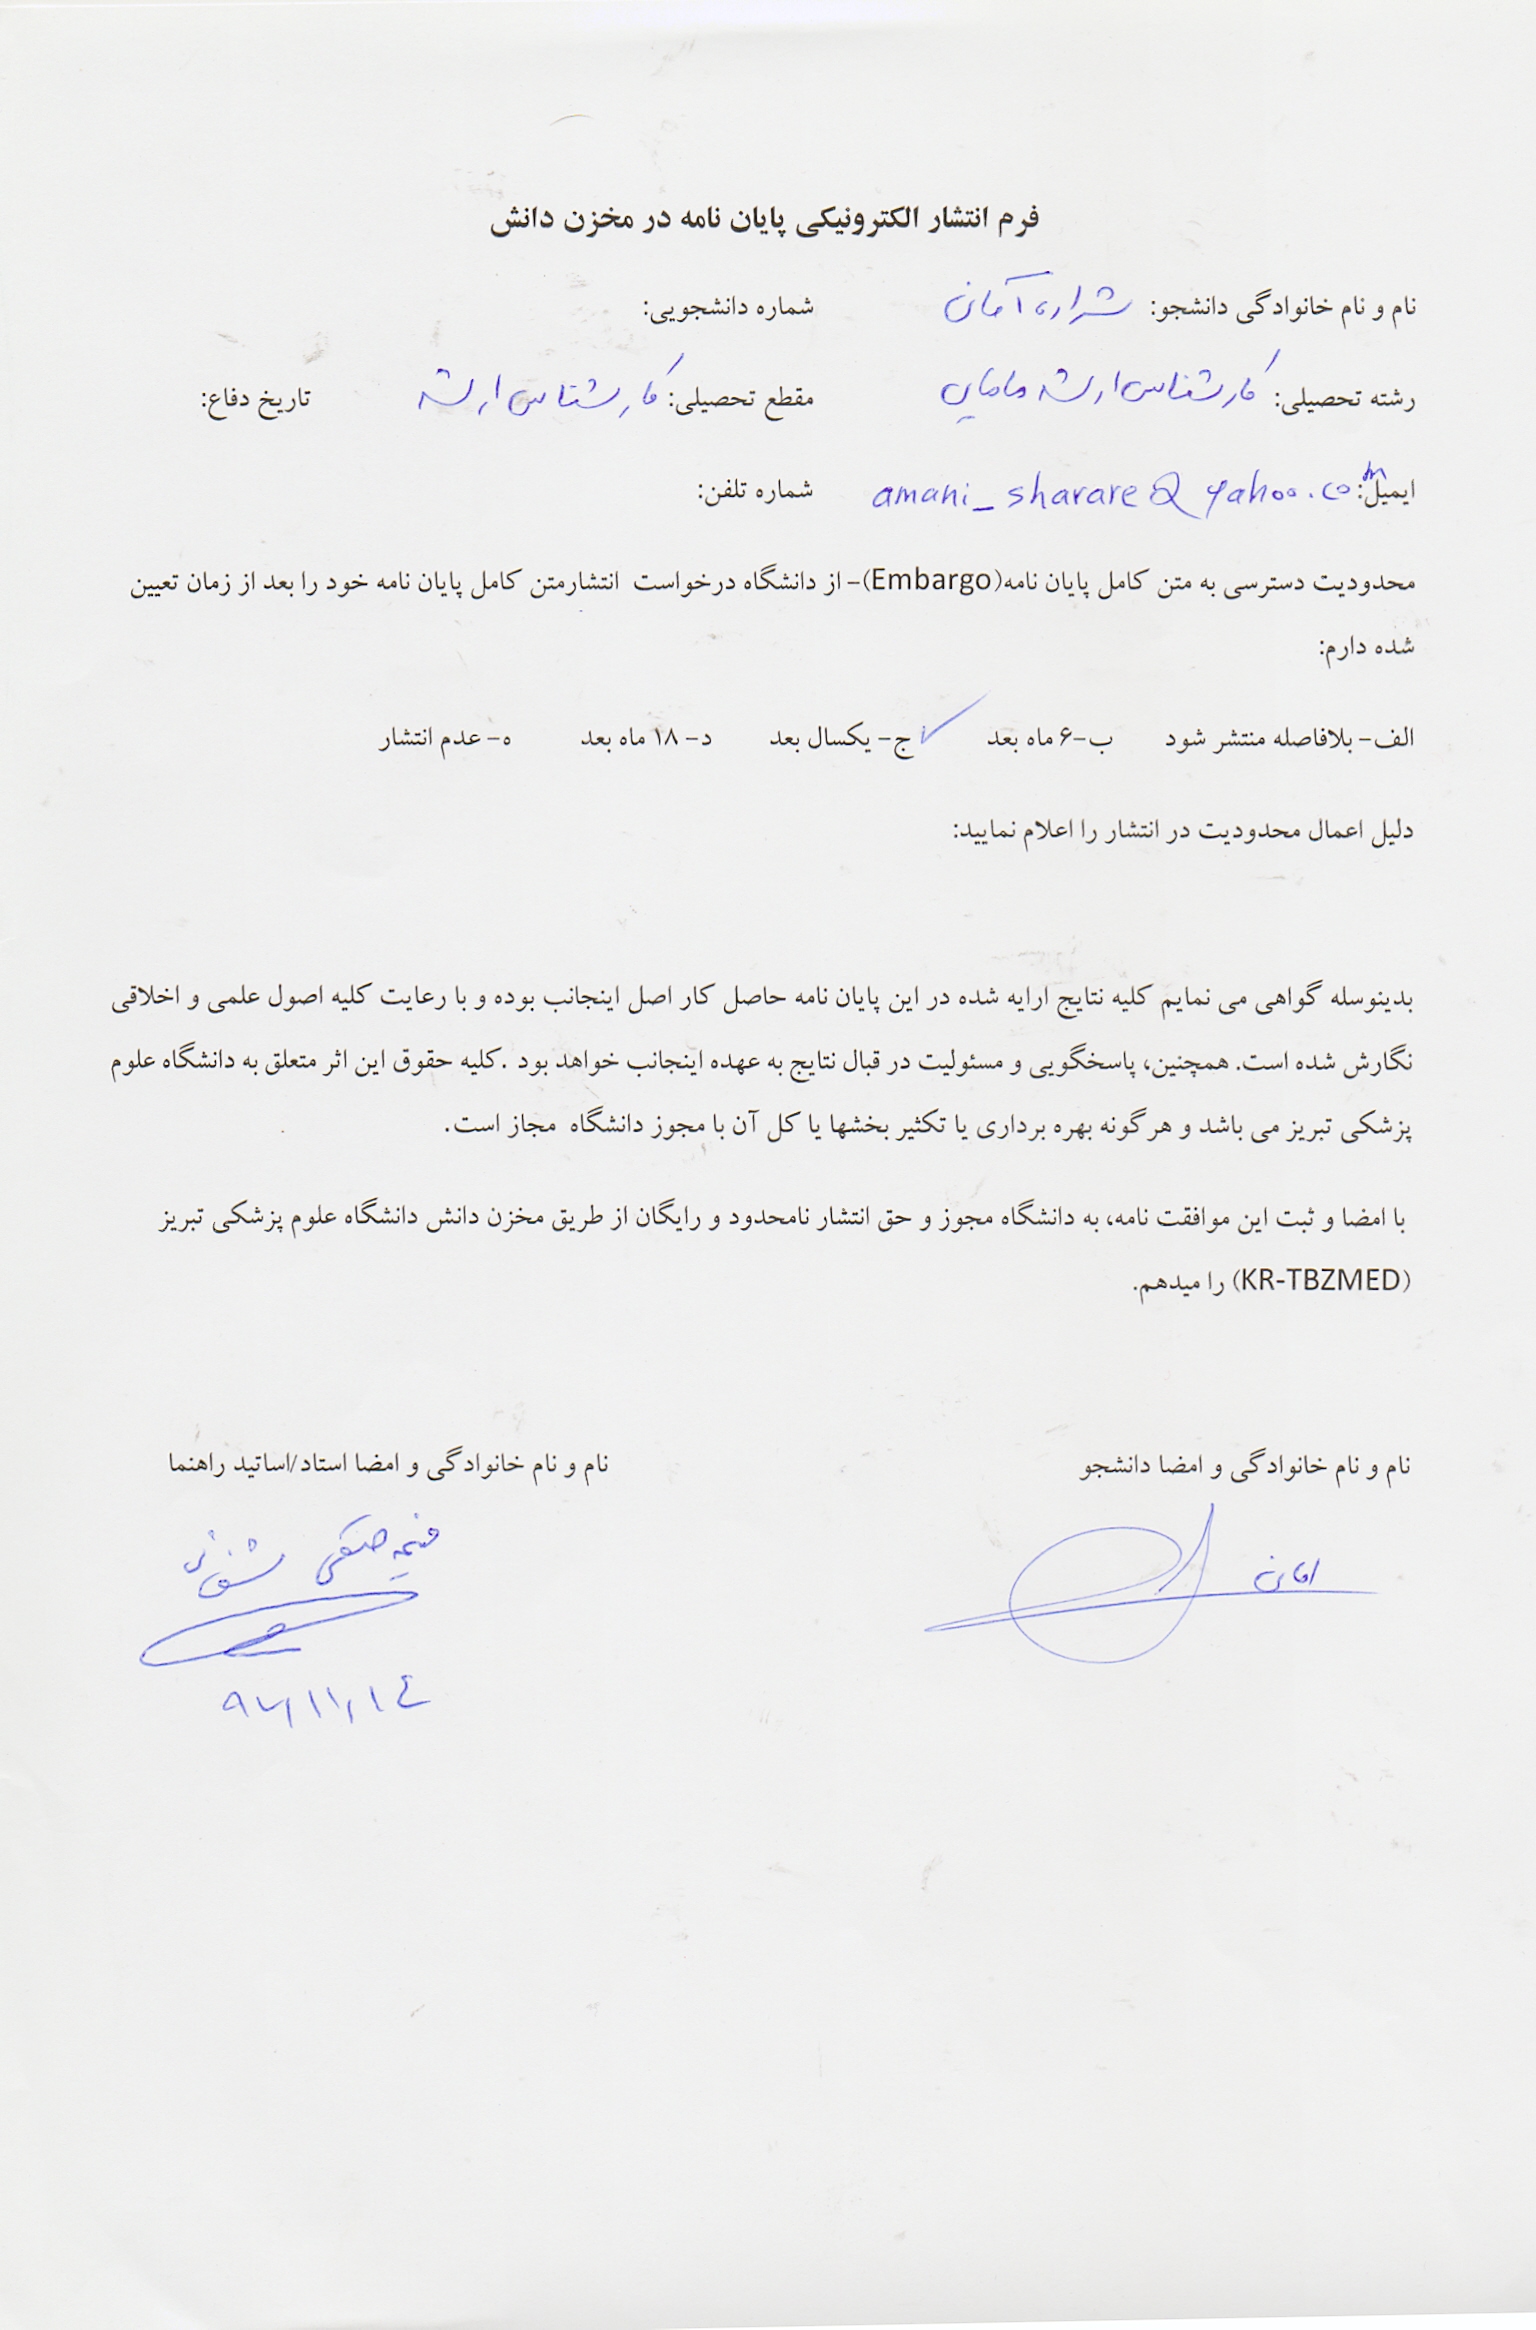 فرم انتشار الکترونیکی پایان نامه در مخزن دانش
نام و نام خانوادگی دانشجو: شراره امانی شماره دانشجویی:
رشته تحصیلی: کارشناسی ارشد مامایی مقطع تحصیلی: کارشناسی ارشد تاریخ دفاع:
ایمیل: amani_sharare@yahoo.com شماره تلفن:
محدودیت دسترسی به متن کامل پایان نامه(Embargo)- از دانشگاه درخواست انتشارمتن کامل پایان نامه خود را بعد از زمان تعیین
شده دارم:
الف- بلافاصله منتشر شود ب-۶ ماه بعد ✓ج- یکسال بعد د- ۱۸ ماه بعد ه- عدم انتشار
دلیل اعمال محدودیت در انتشار را اعلام نمایید:
بدینوسله گواهی می نمایم کلیه نتایج ارایه شده در این پایان نامه حاصل کار اصل اینجانب بوده و با رعایت کلیه اصول علمی و اخلاقی
نگارش شده است. همچنین، پاسخگویی و مسئولیت در قبال نتایج به عهده اینجانب خواهد بود .کلیه حقوق این اثر متعلق به دانشگاه علوم
پزشکی تبریز می باشد و هرگونه بهره برداری یا تکثیر بخشها یا کل آن با مجوز دانشگاه مجاز است.
با امضا و ثبت این موافقت نامه، به دانشگاه مجوز و حق انتشار نامحدود و رایگان از طریق مخزن دانش دانشگاه علوم پزشکی تبریز
(KR-TBZMED) را میدهم.
نام و نام خانوادگی و امضا دانشجو نام و نام خانوادگی و امضا استاد/اساتید راهنما
امانی
۹۷/۱۱/۱۴